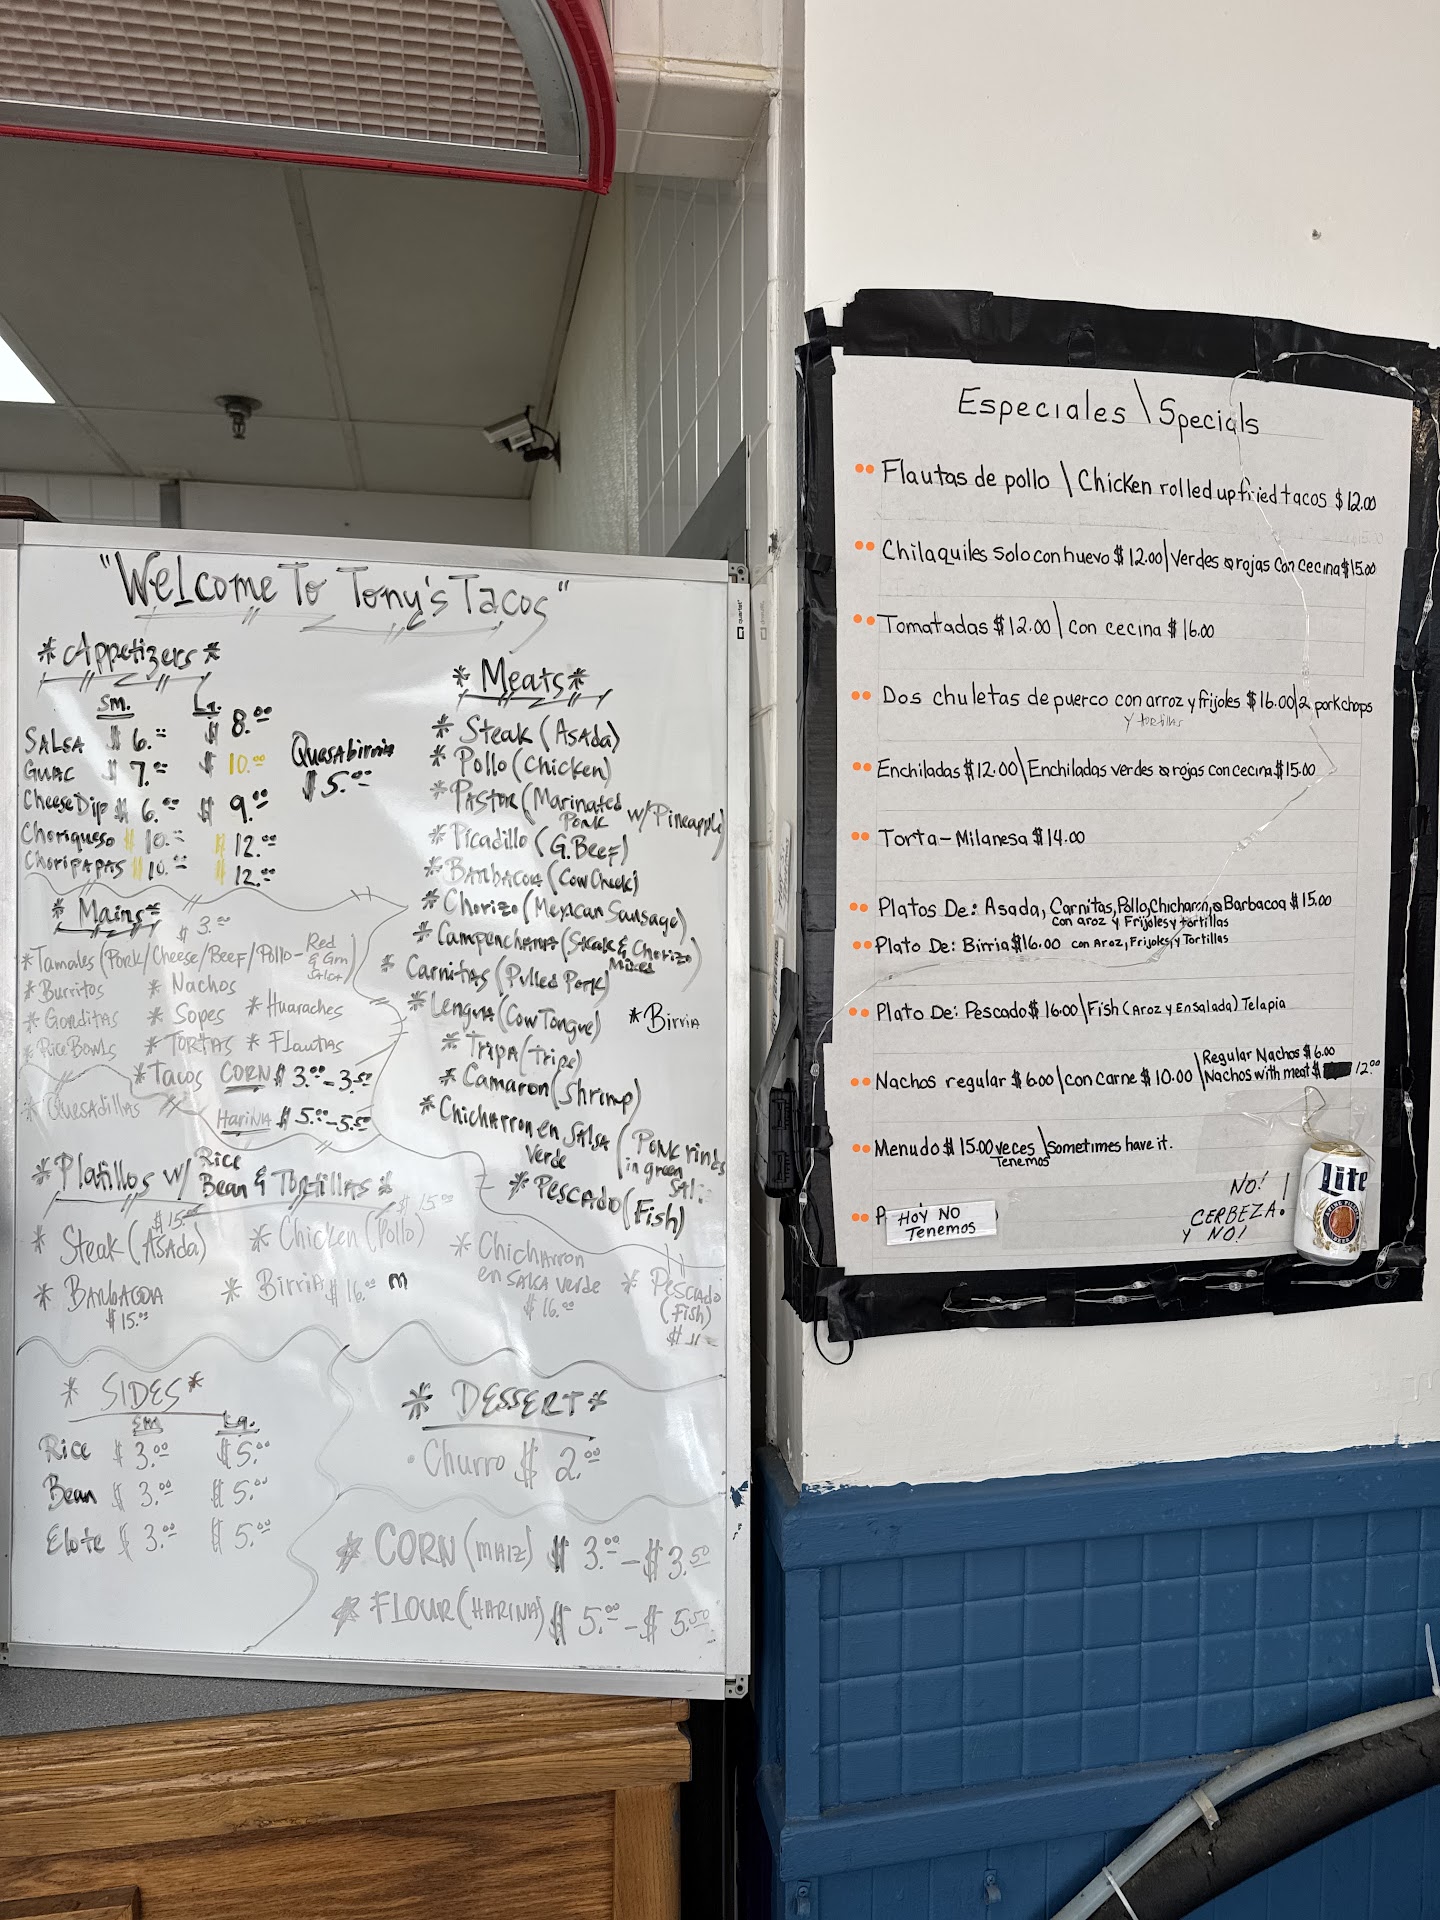 "Welcome To Tony's Tacos"
*Appetizers*
Sm. Lg.
SALSA $6.00 $8.00
GUAC $7.00 $10.00
Cheese Dip $6.00 $9.00
Choriqueso $10.00 $12.00
Choripapas $10.00 $12.00
Quesabirria
$5.00
*Mains*
$3.00
*Tamales (Pork/Cheese/Beef/Pollo-Red & Grn Salsa)
*Burritos *Nachos
*Gorditas *Sopes *Huaraches
*Rice Bowls *TORTAS *Flautas
*Tacos CORN $3.00-3.50
*Quesadillas HARINA $5.00-5.50
*Meats*
*Steak (Asada)
*Pollo (Chicken)
*Pastor (Marinated Pork w/Pineapple)
*Picadillo (G.Beef)
*Barbacoa (Cow Cheek)
*Chorizo (Mexican Sausage)
*Campechana (Steak & Chorizo Mixed)
*Carnitas (Pulled Pork)
*Lengua (Cow Tongue) *Birria
*Tripa (Tripe)
*Camaron (Shrimp)
*Chicharron en Salsa Verde (Pork rinds in green
*Pescado (Fish)
*Platillos w/ Rice Bean & Tortillas* $15.00
$15.00
*Steak (Asada) *Chicken (Pollo) *Chicharron en Salsa Verde $16.00
*Barbacoa $15.00 *Birria $16.00 m *Pescado (Fish)
*SIDES*
Sm. Lg.
Rice $3.00 $5.00
Bean $3.00 $5.00
Elote $3.00 $5.00
*DESSERT*
·Churro $2.00
*CORN (MAIZ) $3.00-$3.50
*FLOUR (HARINA) $5.00-$5.50
quartet
Especiales \ Specials
Flautas de pollo \ Chicken rolled up fried tacos $12.00
Chilaquiles solo con huevo $12.00 | Verdes o rojas con cecina $15.00
Tomatadas $12.00 \ con cecina $16.00
Dos chuletas de puerco con arroz y frijoles $16.00 | 2 pork chops
y tortillas
Enchiladas $12.00 \ Enchiladas verdes o rojas con cecina $15.00
Torta-Milanesa $14.00
Platos De: Asada, Carnitas, Pollo, Chicharrn, o Barbacoa $15.00
con aroz y Frijoles y tortillas
Plato De: Birria $16.00 con Aroz, Frijoles, y Tortillas
Plato De: Pescado $16.00 | Fish (Aroz y Ensalada) Telapia
Nachos regular $6.00 | con carne $10.00 \ Regular Nachos $6.00
Nachos with meat $ 12.00
Menudo $15.00 veces \ Sometimes have it.
Tenemos
P
HOY NO
Tenemos
NO!
CERBEZA!
Y NO!
Lite